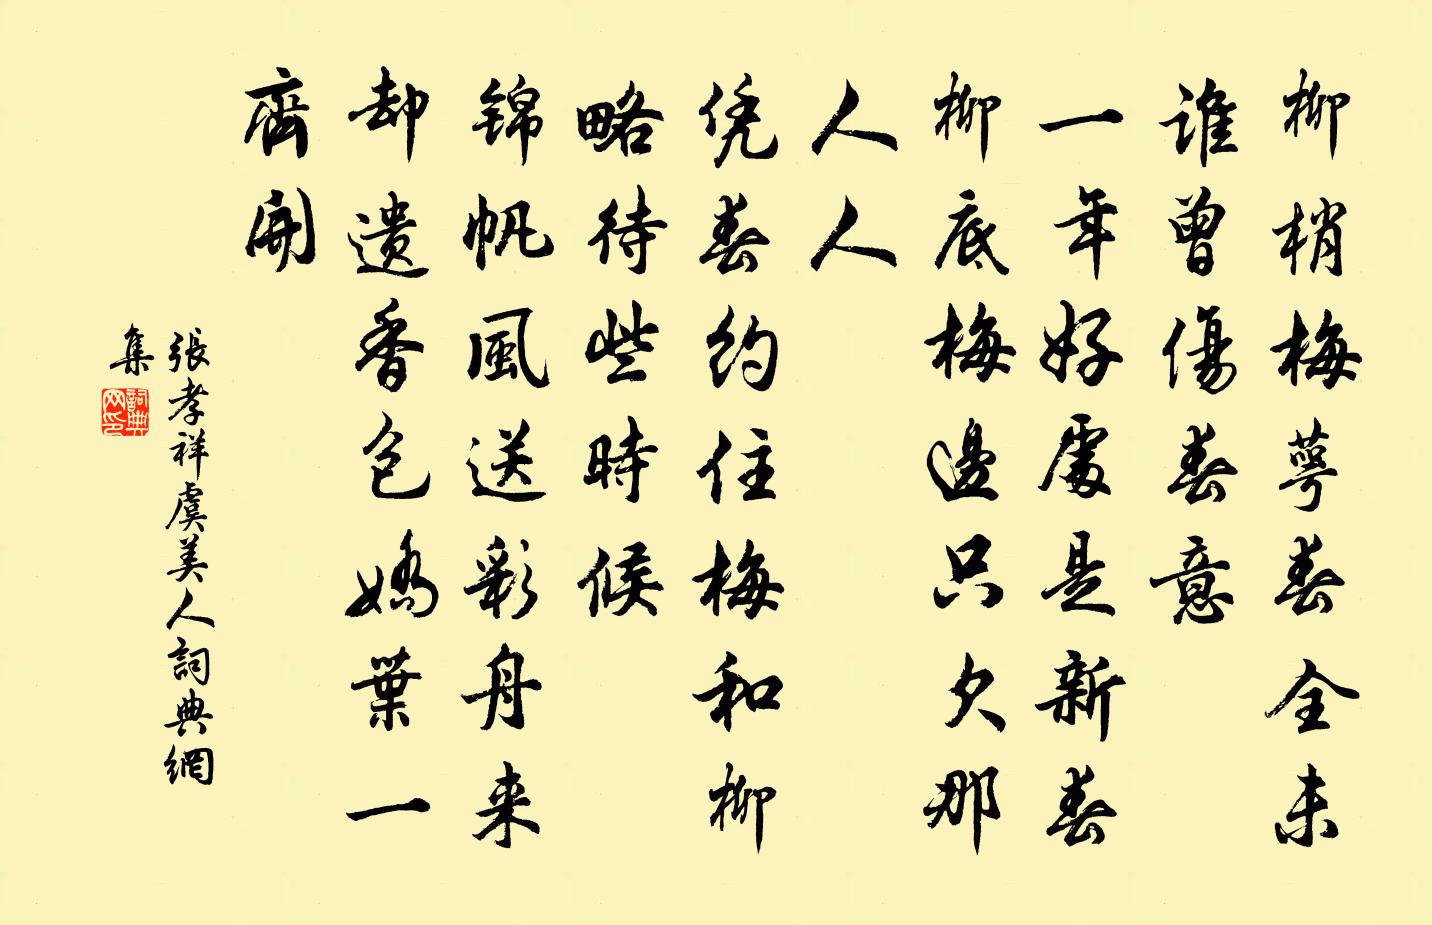 柳梢梅萼春全未
誰曾傷春意
一年好處是新春
柳底梅邊只欠那
人人
凭春約住梅和柳
略待些時候
锦帆風送彩舟来
却遗香色嬌葉一
齊開
張孝祥虞美人詞典網
集
詞典網印